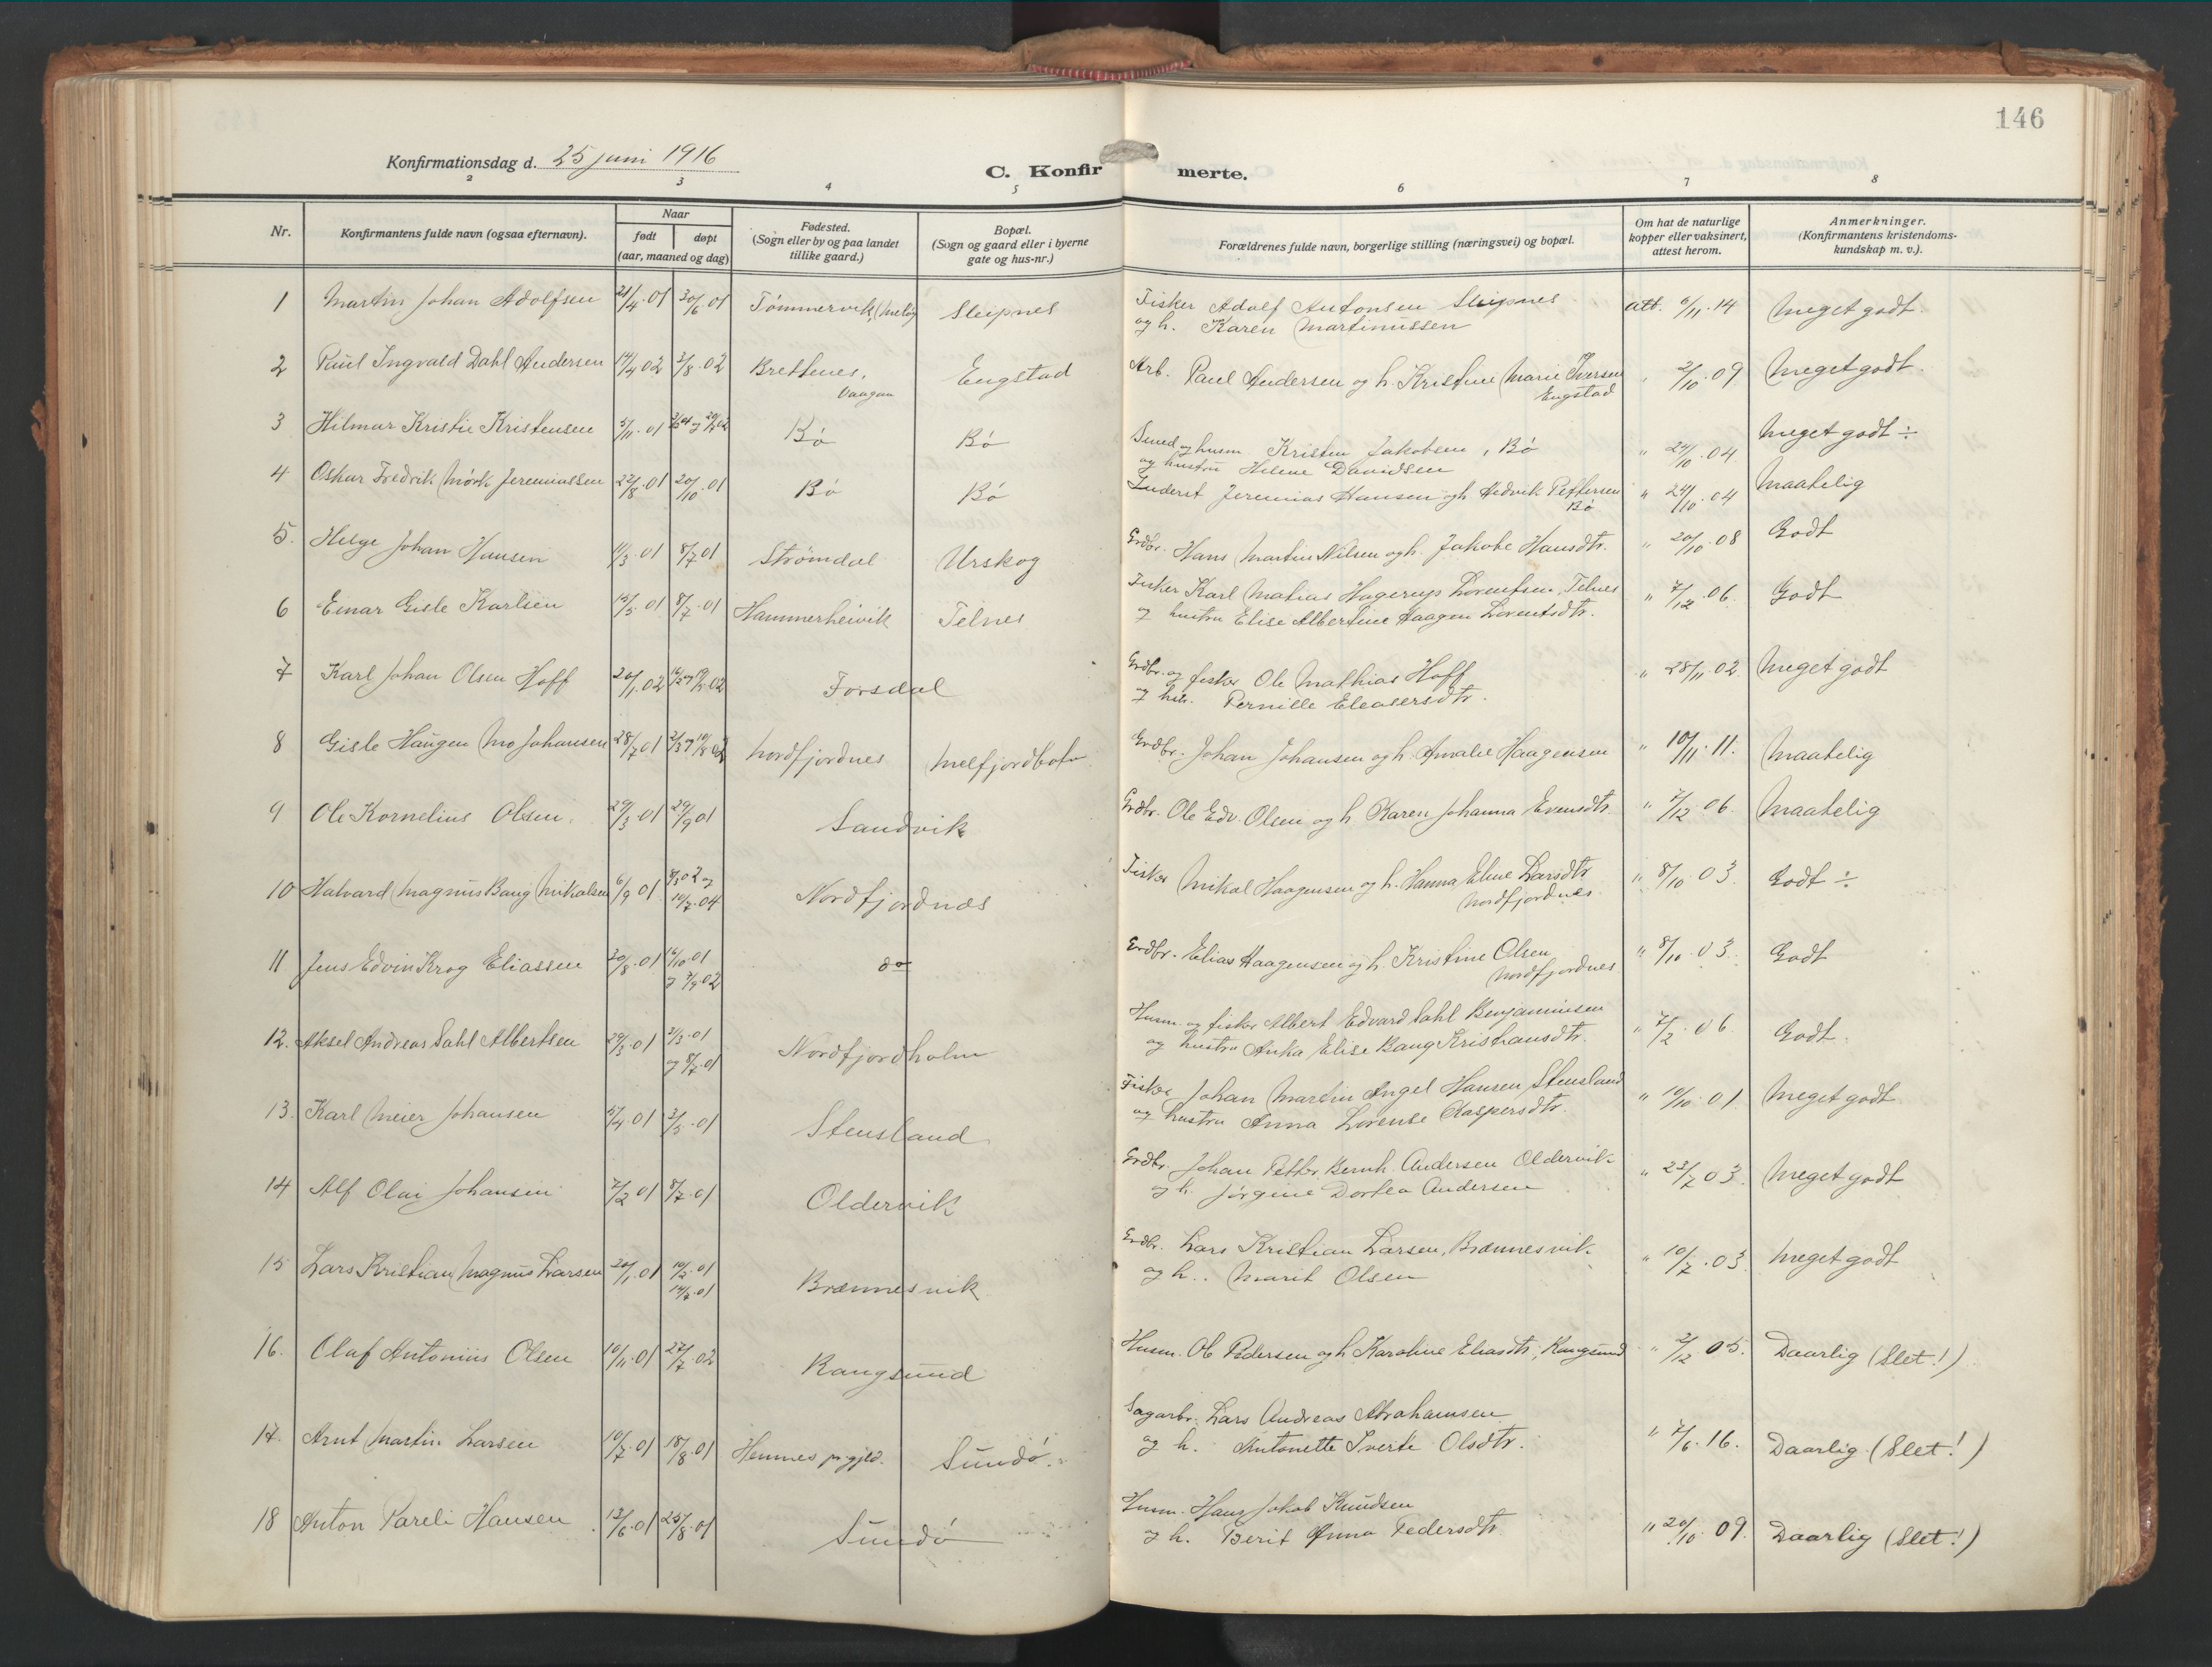 146
Konfirmationsdag d. 25 juni 1916
C. Konfirmerte.
2 3 4 5 6 7 8
Nr. Konfirmantens fulde navn (ogsaa efternavn). Naar født døpt (aar, maaned og dag) Fødested. (Sogn eller by og paa landet tillike gaard.) Bopæl. (Sogn og gaard eller i byerne gate og hus-nr.) Forældrenes fulde navn, borgerlige stilling (næringsvei) og bopæl. Om hat de naturlige kopper eller vaksinert, attest herom. Anmerkninger. (Konfirmantens kristendoms-kundskap m. v.).
1 Martin Johan Adolfsen 21/4.01 30/6.01 Tømmervik, (Meløy Sleipnes Fisker Adolf Antonsen Sleipnes att. 6/11.14 Meget godt.
og h. Karen Martinussen
2 Paul Ingvald Dahl Andersen 14/4 02 3/8.02 Brettenes, Engstad Arb. Paul Andersen og h. Kristine Marie Iversen " 2/10.09 Meget godt.
Vaagan Engstad
3 Hilmar Kristie Kristensen 5/11.01 Bø Bø Smed og husm Kristen Jakobsen, Bø " 24/10.04 Meget godt ÷
og hustru Helene Davidsen
4 Oskar Fredrik Mørk Jeremiassen 22/8.01 20/10.01 Bø Bø Inderst Jeremias Hansen og h. Hedvik Pettersen " 24/10.04 Maatelig
Bø
5. Helge Johan Hansen 11/3.01 8/7 01 Strømdal Urskog Grdbr. Hans Martin Nilsen og h. Jakobe Hansdtr. " 20/10.08 Godt
6 Einar Gisle Karlsen 15/5.01 8/7.01 Hammerheivik Telnes Fisker Karl Matias Hagerup Lorentsen, Telnes " 7/12.06. Godt
og hustru Elise Albertine Haagen Lorentsdtr.
7 Karl Johan Olsen Hoff 20/1.02 Forsdal Grdbr. og fisker Ole Mathias Hoff " 28/11.02. Meget godt
og hu. Pernille Eleasersdtr.
8 Gisle Haugen Mo Johansen 28/7 01 Nordfjordnes Melfjordbotn Grdbr. Johan Johansen og h. Amalie Haagensen " 10/11.11. Maatelig
9 Ole Kornelius Olsen. 29/3.01 29/9 01 Sandvik Grdbr. Ole Edv. Olsen og h. Karen Johanna Evensdtr. " 7/12.06. Maatelig
10 Halvard Magnus Bang Mikalsen 6/9 01 8/3 02 og Nordfjordnæs Fisker Mikal Haagensen og h. Hanna Eline Larsdtr " 8/10.03. Godt ÷
10/7.04 Nordfjordnes
11 Jens Edvin Krog Eliassen 20/8.01 16/10.01 do Grdbr. Elias Haagensen og h. Kristine Olsen " 8/10.03. Godt
og 7/9.02 Nordfjordnes
12. Aksel Andreas Dahl Albertsen 29/3.01 31/3.01 Nordfjordholm Husm. og fisker Albert Edvard Dahl Benjaminsen " 7/2.06. Godt.
og 8/7.01 og hustru Anka Elise Bang Kristiansdtr.
13. Karl Meier Johansen 5/4.01 3/5.01 Stensland Fisker Johan Martin Angel Hansen, Stensland " 10/10.01. Meget godt
og hustru Anna Lorense Kaspersdtr.
14 Alf Olai Johansen 7/2 01 8/7.01 Oldervik Grdbr. Johan Petter Bernh. Andersen Oldervik " 23/7 03. Meget godt
og h. Jørgine Dortea Andersen
15 Lars Kristian Magnus Larsen 20/1.01 10/2.01 Brænnesvik Grdbr. Lars Kristian Larsen, Brænnesvik " 10/7.03. Meget godt
14/7.01 og h. Marit Olsen
16. Olaf Antonius Olsen 10/11.01 27/7.02 Rangsund Husm. Ol. Pedersen og h. Karoline Eliasdtr, Rangsund " 2/12 05. Daarlig (Slet!)
17. Arnt Martin Larsen 10/7.01 18/8.01 Hemnes prgjeld. Sundø. Sagarbr. Lars Andreas Abrahamsen " 7/6.16. Daarlig (Slet!)
og h. Antonette Sverte Olsdtr.
18 Anton Pareli Hansen 13/6.01 25/8.01 Sundø Husm. Hans Jakob Knudsen " 20/10.09. Daarlig (Slet!)
og h. Berit Anna Pedersdtr.